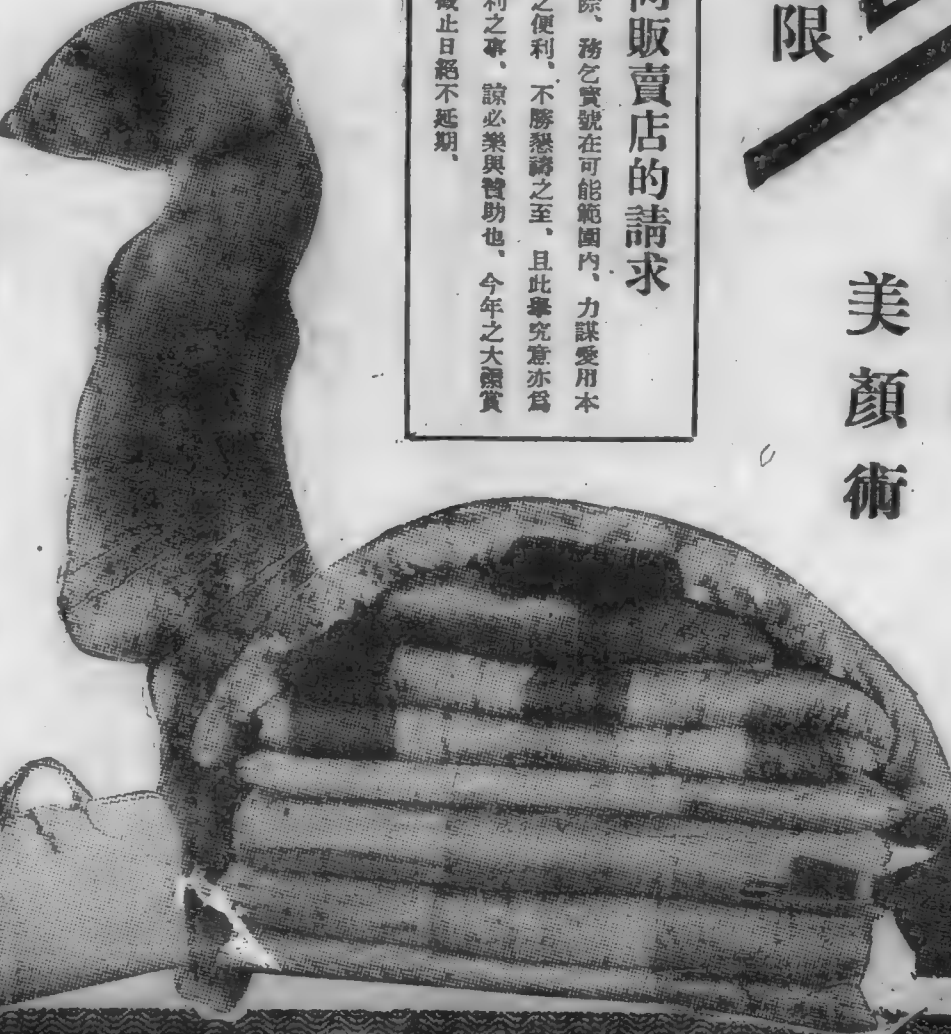 限
美顏術
販賣店的請求
務乞寶號在可能範圍内、力謀愛用本
之便利、不勝懇禱之至、且此舉究意亦爲
利之事、諒必樂與贊助也、今年之大懸賞
截止日絕不延期、